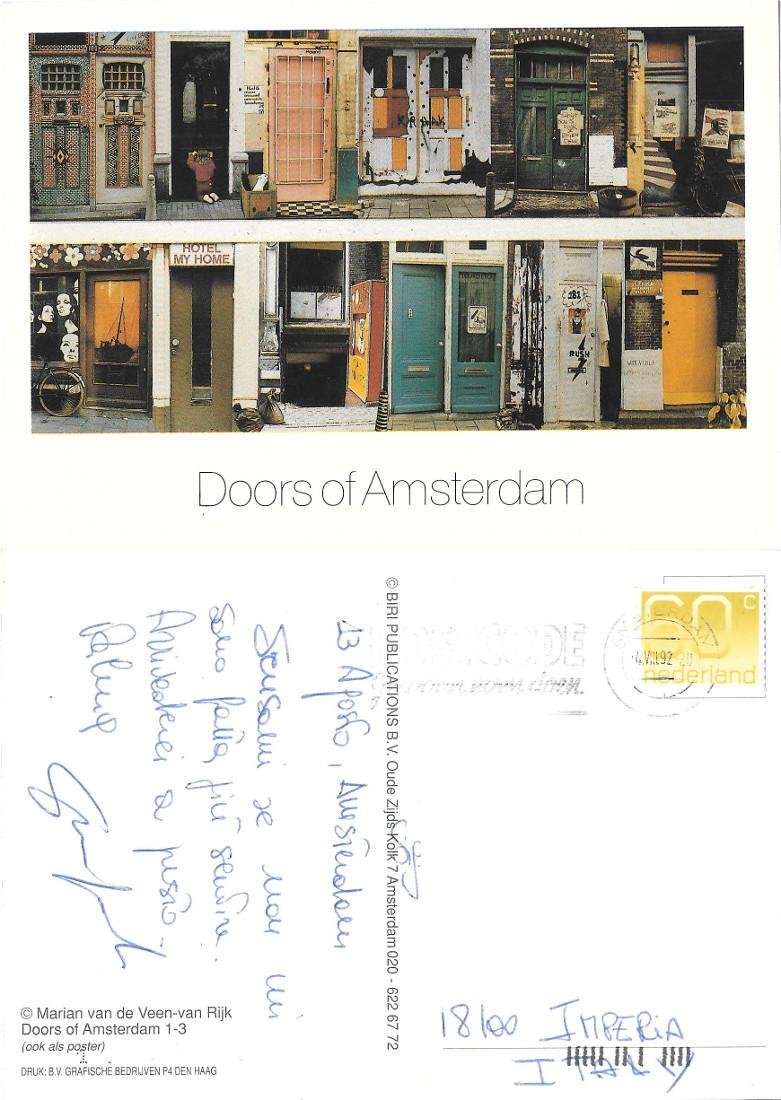 HOTEL
MY HOME
RUSH
Doors of Amsterdam
© BIRI PUBLICATIONS B.V. Oude Zijds Kolk 7 Amsterdam 020 - 622 67 72
POSTCODE
60 c
nederland
AMSTERDAM
VIII.92
13 Agosto, Amsterdam
Scusami se non mi
sono fatta più sentire.
a presto..
18100 IMPERIA
ITALY
© Marian van de Veen-van Rijk
Doors of Amsterdam 1-3
(ook als poster)
DRUK: B.V. GRAFISCHE BEDRIJVEN P4 DEN HAAG